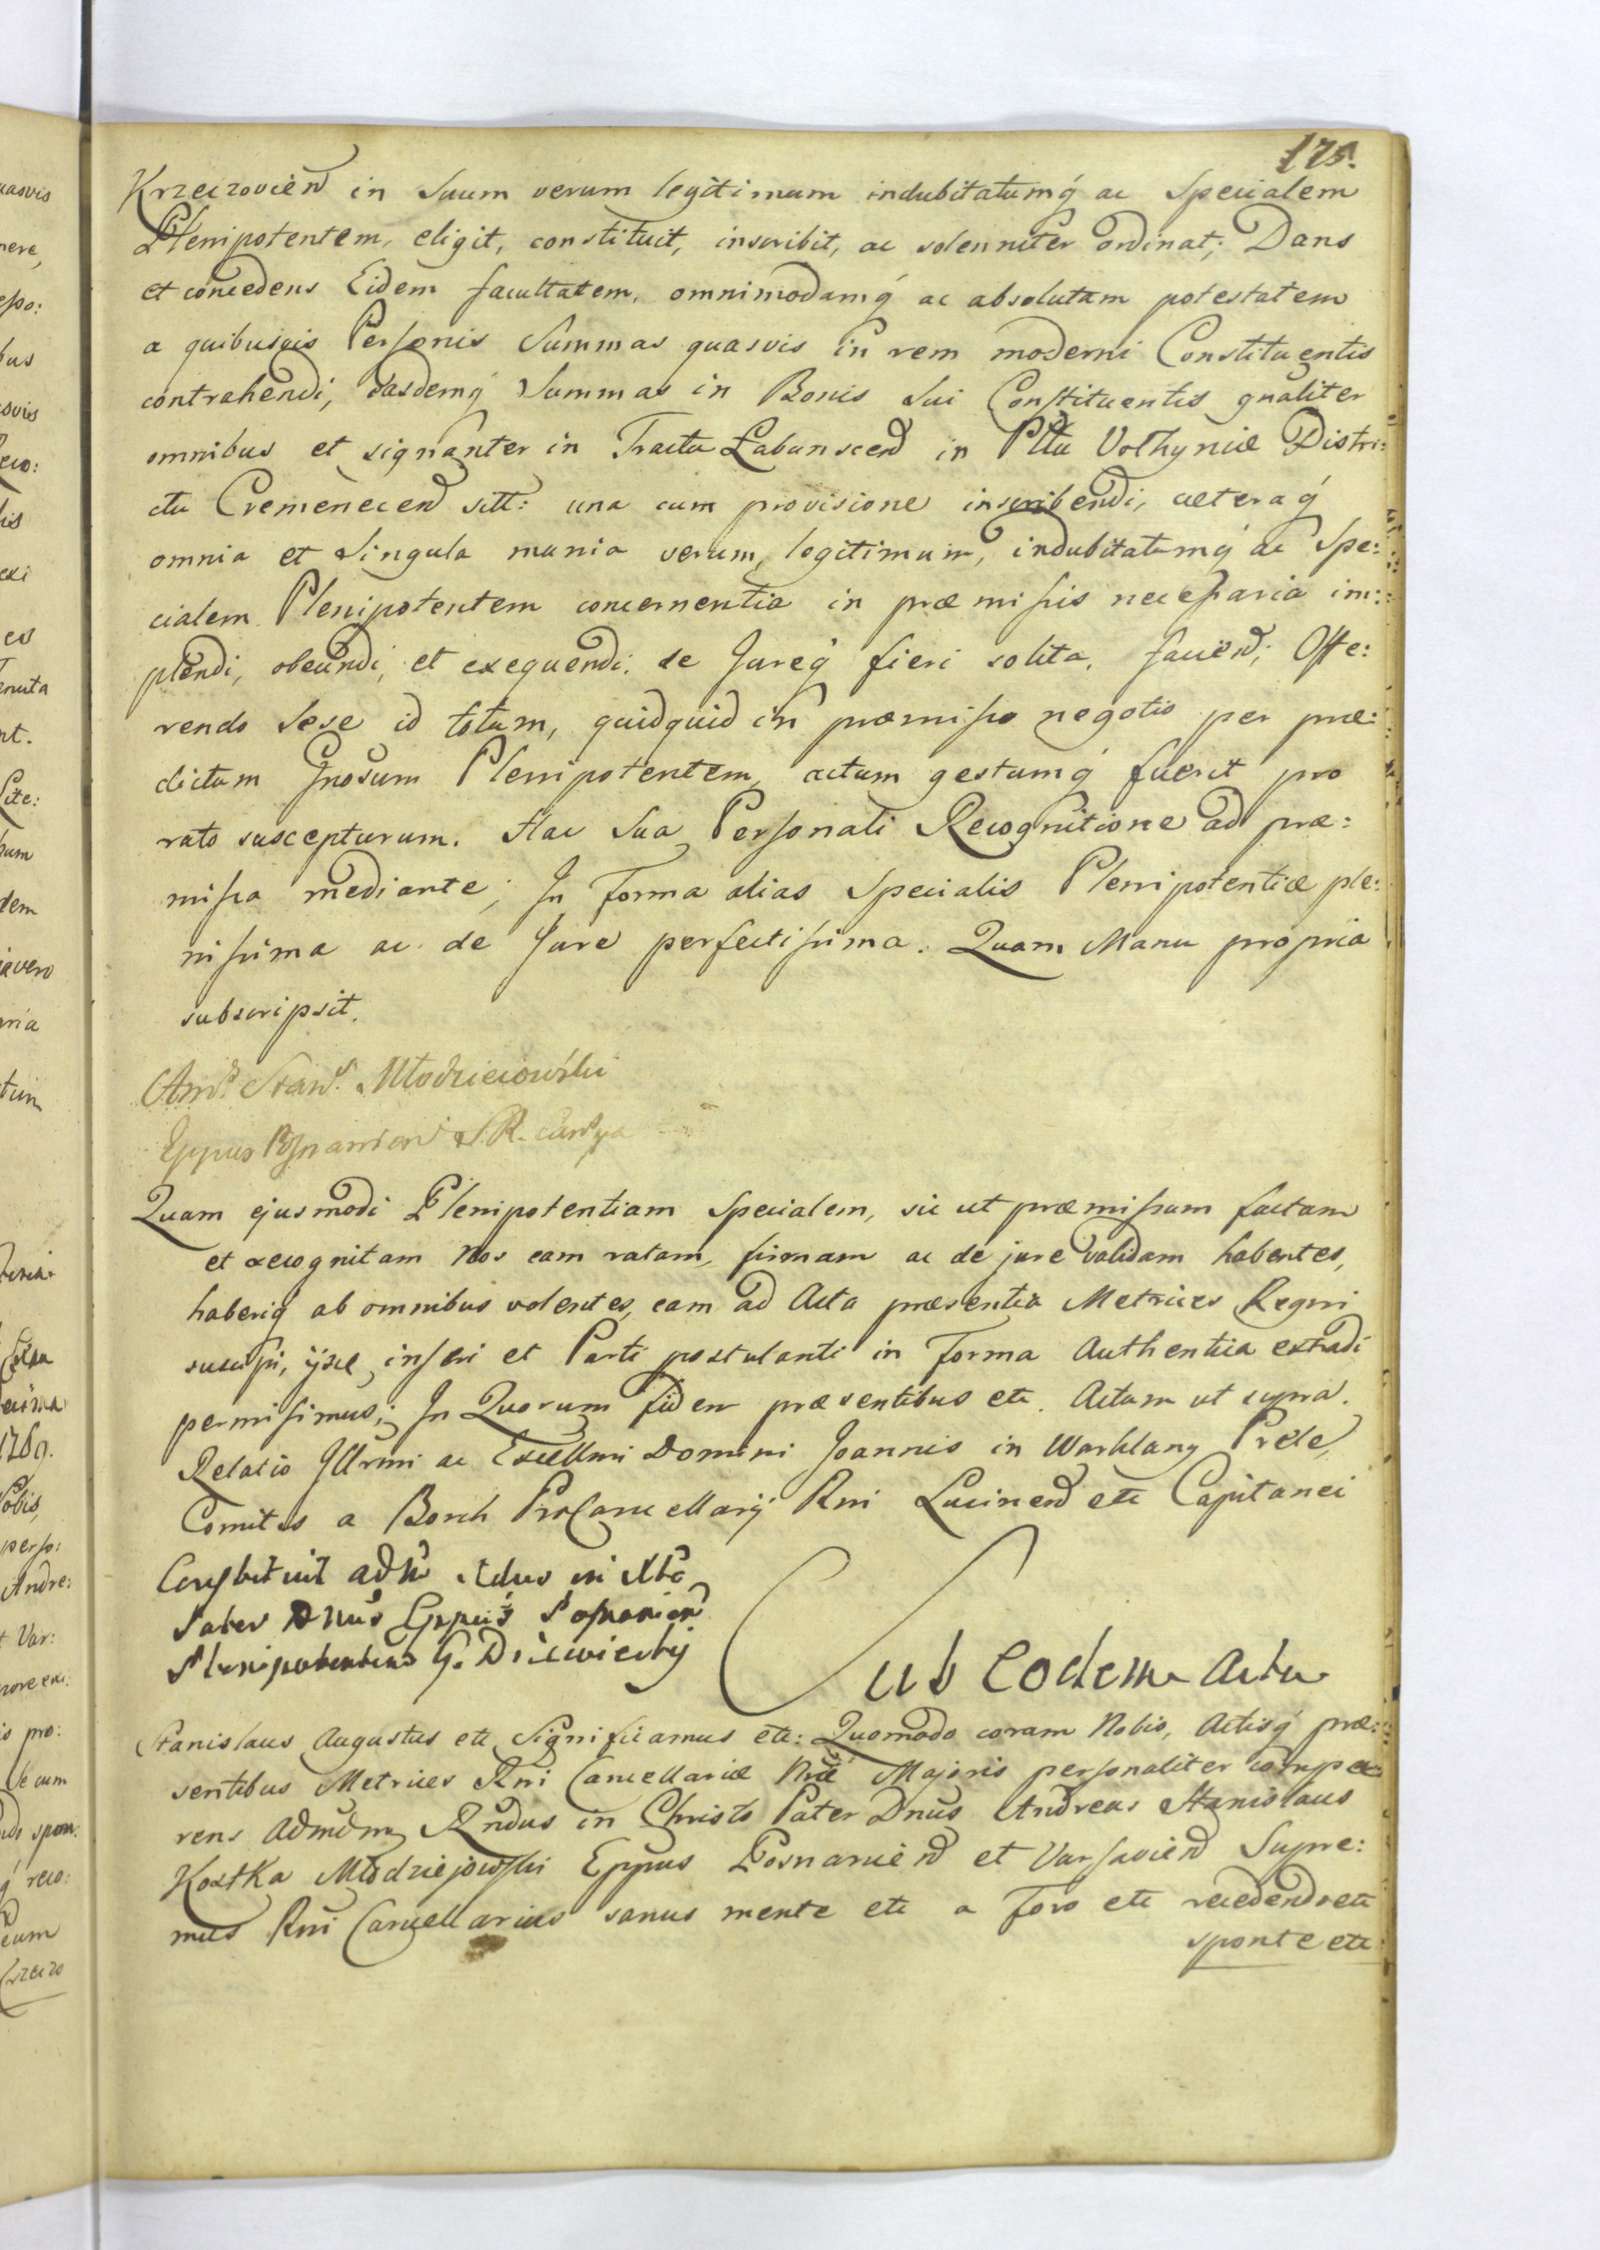 175.
Krzeczovień in Suum verum legitimum indubitatumq́ ac Specialem
Plenipotentem, eligit, constituit, inscribit, ac solenniter ordinat; Dans
et concedens Eidem facultatem, omnimodamq́ ac absolutam potestatem
a quibusvis Personis Summas quasvis in rem moderni Constituentis
contrahendi, easdemq́ Summas in Bonis Sui Constituentis gnaliter
omnibus et signanter in Tractu Łabunscen in Pttu Volhyniæ Distri:
ctu Cremenecen sitt: una cum provisione inscribendi, cæteraq́
omnia et Singula munia verum, legitimum, indubitatumq́ ac Spe:
cialem Plenipotentem concernentia in præmissis necessaria im:
plendi, obeundi, et exequendi. de Jureq́ fieri solita, faciend; Offe:
rendo Sese id totum, quidquid in præmisso negotio per præ:
dictum Gnosum Plenipotentem actum gestumq́ fuerit pro
rato suscepturum. Hac Sua Personali Recognitione ad præ:
missa mediante; In Forma alias Specialis Plenipotentiæ ple:
nissima ac de Jure perfectissima. Quam Manu propria
subscripsit.
Młodzieiowski
Eppus Posnanien
Quam ejusmodi Plenipotentiam Specialem, sic ut præmissum factam
et recognitam Nos eam ratam, firmam ac de jure validam habentes,
haberiq́ ab omnibus volentes, eam ad Acta præsentia Metrices Regni
suscipi, ijsq́ inseri et Parti postulanti in Forma Authentica extradi
permisimus; In Quorum fidem præsentibus etc. Actum ut supra.
Relatio Illrmi ac Excellmi Domini Joannis in Warklany Prele,
Comitis a Borch ProCancellarij Rni Lucinen etc Capitanei
Constituit in Xto
Pater Dnus Eppus Posnanien
Plenipotentem G.
Sub eodem Actu
Stanislaus Augustus etc Significamus etc: Quomodo coram Nobis, Actisq́ præ:
sentibus Metrices Rni Cancellariæ Nræ Majoris personaliter compa
rens Admdm Rndus in Christo Pater Dnus Andreas Stanislaus
Kostka Młodziejowski Eppus Posnanień et Varsavień Supre:
mus Rni Cancellarius sanus mente etc a Foro etc recedendo etc
sponte etc